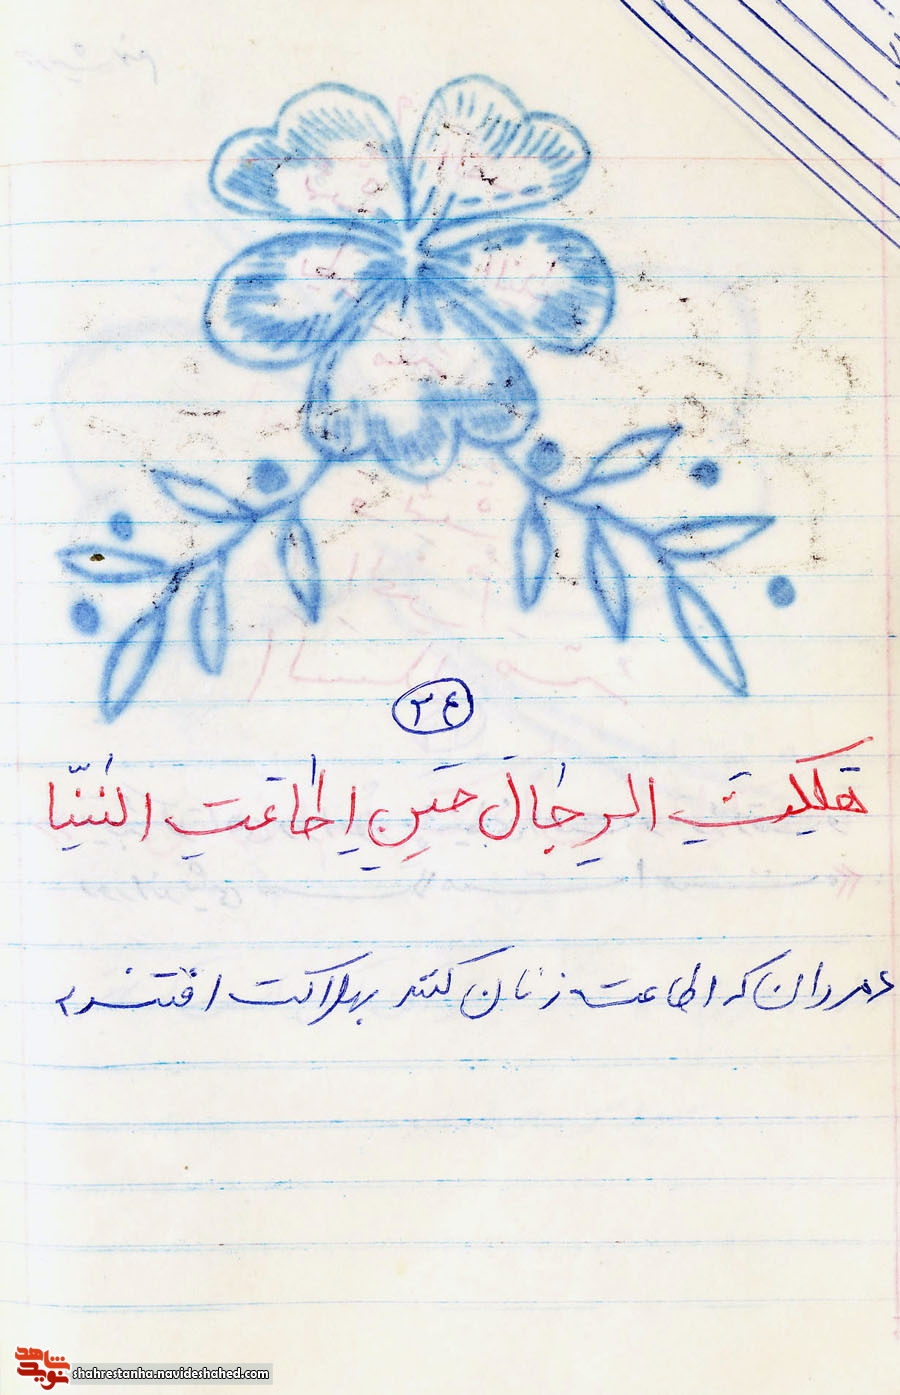 ۲۴
هَلَکَتِ الرِجالَ حَینِ اِطاعَتِ النِّسَا
مردان که اطاعت زنان کنند بهلاکت افتند
نوید شاهد
shahrestanha.navideshahed.com